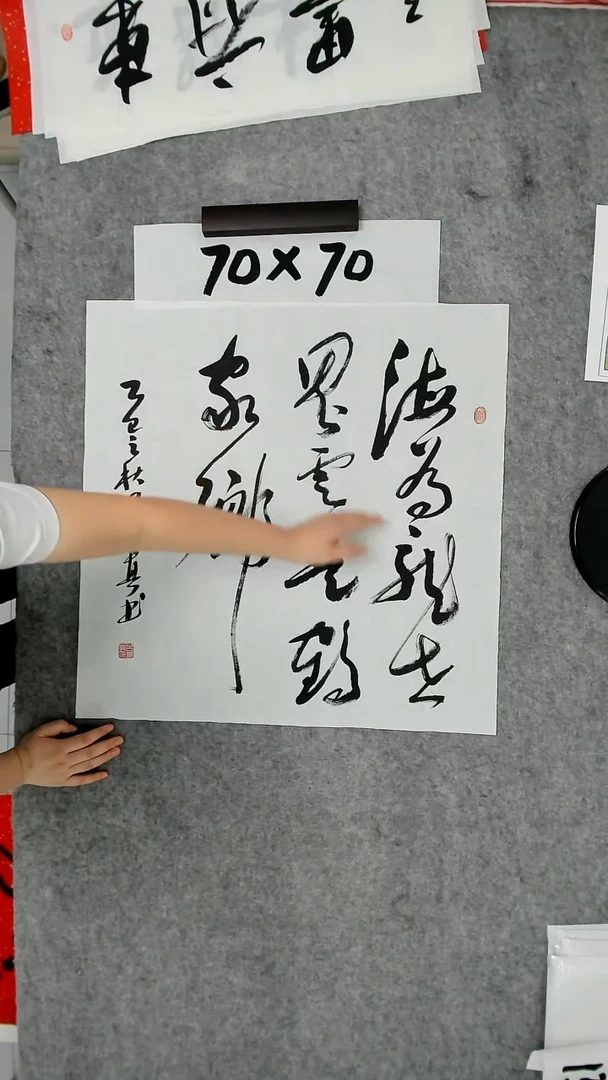 70×70
海为龙世
界云是鹤
家乡
乙巳之秋
真书